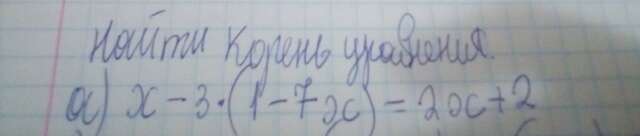 Найти корень уравнения.
а) x - 3·(1 - 7x) = 2x + 2